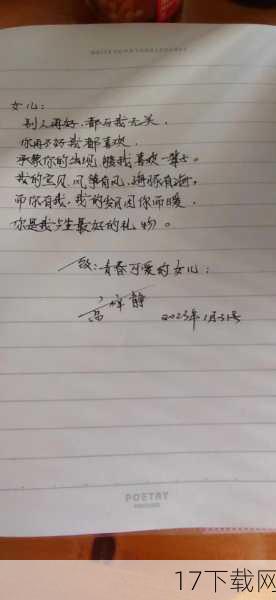 女儿：
别人再好，都与我无关，
你再不好我都喜欢，
感你的出现，我喜欢一等。
我的宝贝，风筝有风，海豚有海，
而你有我，我的因你而暖，
你是我今生最好的礼物。
致：青春可爱的女儿：
静
2023年1月31号
POETRY
17下载网